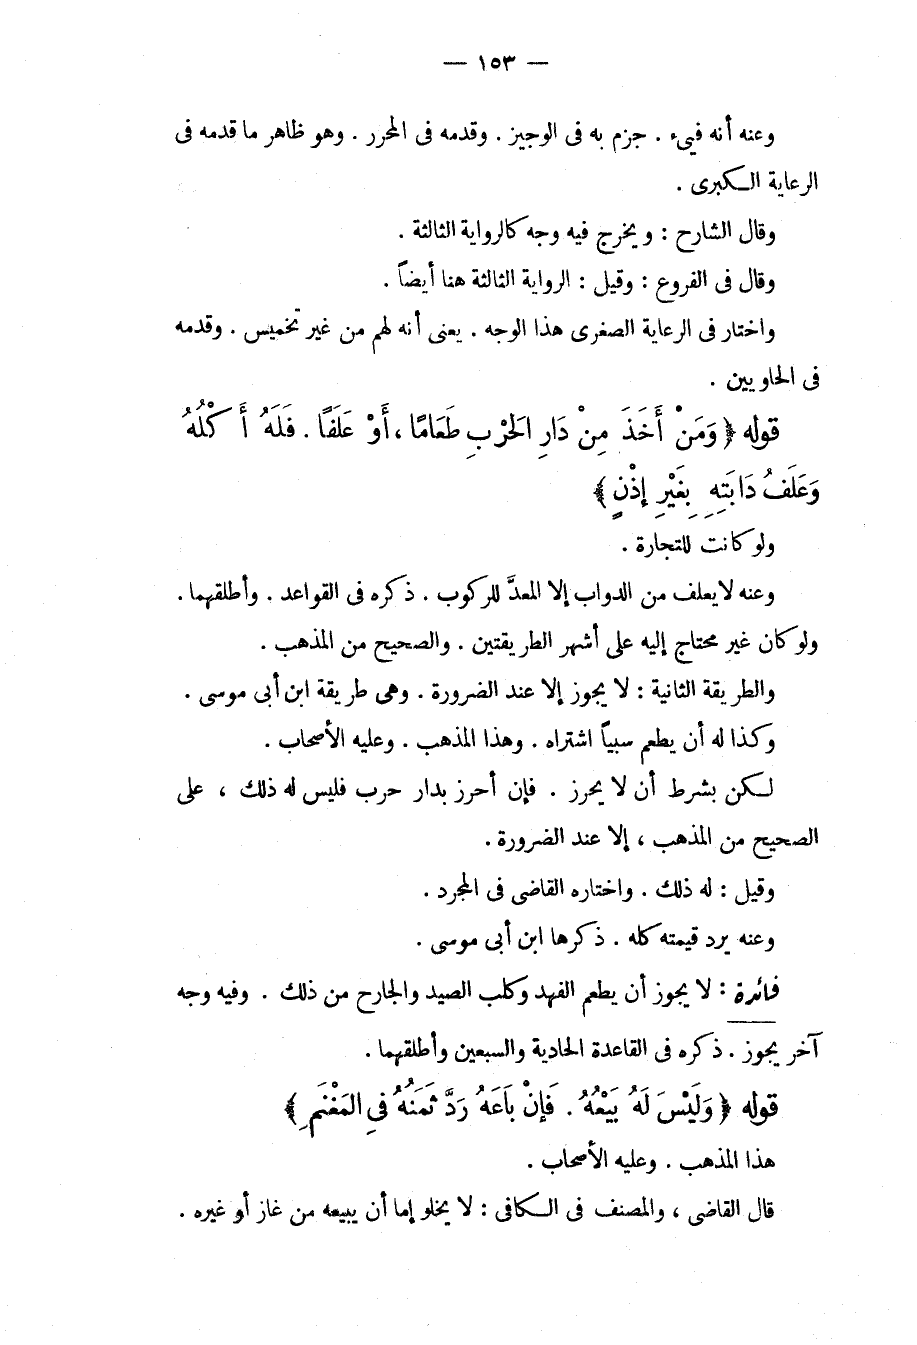 — ١٥٣ —
وعنه أنه فيىء . جزم به فى الوجيز . وقدمه فى المحرر . وهو ظاهر ما قدمه فى
الرعاية الكبرى .
وقال الشارح : ويخرج فيه وجه كالرواية الثالثة .
وقال فى الفروع : وقيل : الرواية الثالثة هنا أيضاً .
واختار فى الرعاية الصغرى هذا الوجه . يعنى أنه لهم من غير تخميس . وقدمه
فى الحاويين .
قوله ﴿ وَمَنْ أَخَذَ مِنْ دَارِ الحَرْبِ طَعَامًا ، أَوْ عَلَفًا . فَلَهُ أَكْلُهُ
وَعَلَفُ دَابَتِهِ بِغَيْرِ إِذْنٍ ﴾
ولو كانت للتجارة .
وعنه لا يعلف من الدواب إلا المعدَّ للركوب . ذكره فى القواعد . وأطلقهما .
ولو كان غير محتاج إليه على أشهر الطريقتين . والصحيح من المذهب .
والطريقة الثانية : لا يجوز إلا عند الضرورة . وهى طريقة ابن أبى موسى .
وكذا له أن يطعم سبياً اشتراه . وهذا المذهب . وعليه الأصحاب .
لكن بشرط أن لا يحرز . فإن أحرز بدار حرب فليس له ذلك ، على
الصحيح من المذهب ، إلا عند الضرورة .
وقيل : له ذلك . واختاره القاضى فى المجرد .
وعنه يرد قيمته كله . ذكرها ابن أبى موسى .
فائدة : لا يجوز أن يطعم الفهد وكلب الصيد والجارح من ذلك . وفيه وجه
آخر يجوز . ذكره فى القاعدة الحادية والسبعين وأطلقهما .
قوله ﴿ وَلَيْسَ لَهُ بَيْعُهُ . فَإِنْ بَاعَهُ رَدَّ ثَمَنُهُ فِى المَغْنَمِ ﴾
هذا المذهب . وعليه الأصحاب .
قال القاضى ، والمصنف فى الكافى : لا يخلو إما أن يبيعه من غاز أو غيره .